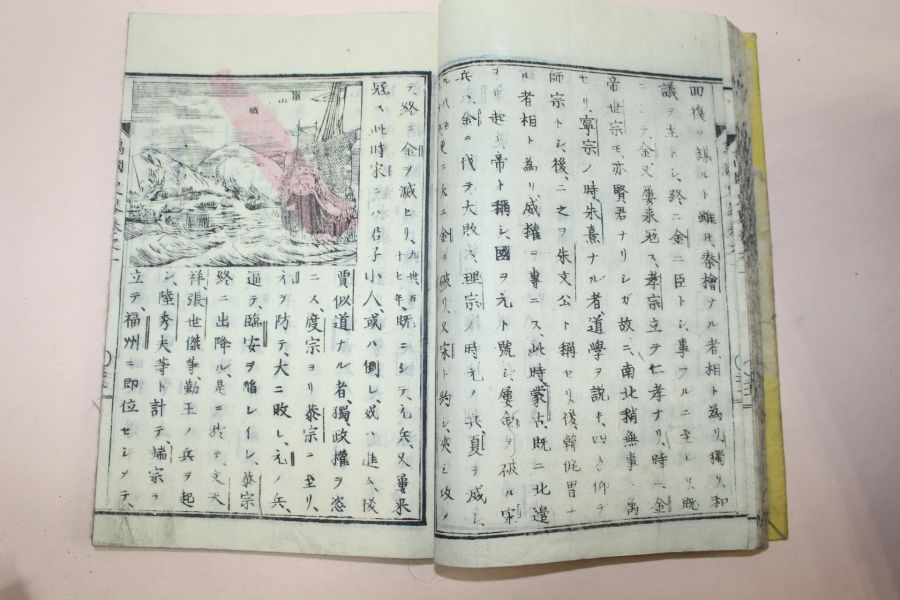 面復ヲ謀ルト雖𪜈秦檜ナル者、相ト為リ、獨リ和
議ヲ主トシ、終ニ金ニ臣トシ、事フルニ至レリ、既
ニシテ、金又屢来冦ス、孝宗立テ仁孝ナリ、時ニ金
帝世宗モ、亦賢君ナリシガ故ニ、南北稍無事ニ為
セリ、寧宗ノ時、朱熹ナル者、道學ヲ説キ、四方仰テ
師宗トシ、後ニ之ヲ朱文公ト稱セリ、後韓侂冑ナ
ル者相ト為リ威權ヲ專ニス、此時、蒙古、既ニ北邊
ヲ起リ帝ト稱シ、國ヲ元ト號シ、屢金ヲ破ル宋
兵、金ニ代ヲ大敗ス、理宗ノ時元ノ兵夏ヲ滅シ、
ニ大ニ金ヲ破リ、又宋ト約シ、夾ミ攻メ
テ、終ニ金ヲ滅セリ、九世百十七年、既ニシテ、元兵、又屢来
冦ス、此時宋ニハ君子小人、或ハ倒レ、或ハ進ム、後
賈似道ナル者、獨、政權ヲ恣
ニス、度宗ヨリ恭宗ニ至リ、
元ヲ防テ、大ニ敗レ、元ノ兵、
逼テ、臨安ヲ陥レイレ、恭宗
終ニ出降ル、是ニ於テ、文天
祥、張世傑等勤王ノ兵ヲ起
シ、陸秀夫等ト計テ、端宗ヲ
立テ、福州ニ即位セシメテ、